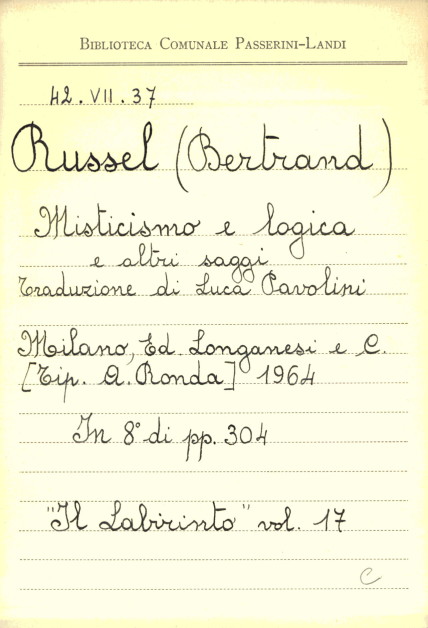 Biblioteca Comunale Passerini-Landi
42.VII.37
Russel (Bertrand)
Misticismo e logica
e altri saggi
Traduzione di Luca Pavolini
Milano, Ed. Longanesi e C.
[Tip. A. Ronda] 1964
In 8° di pp. 304
"Il Labirinto" vol. 17
C